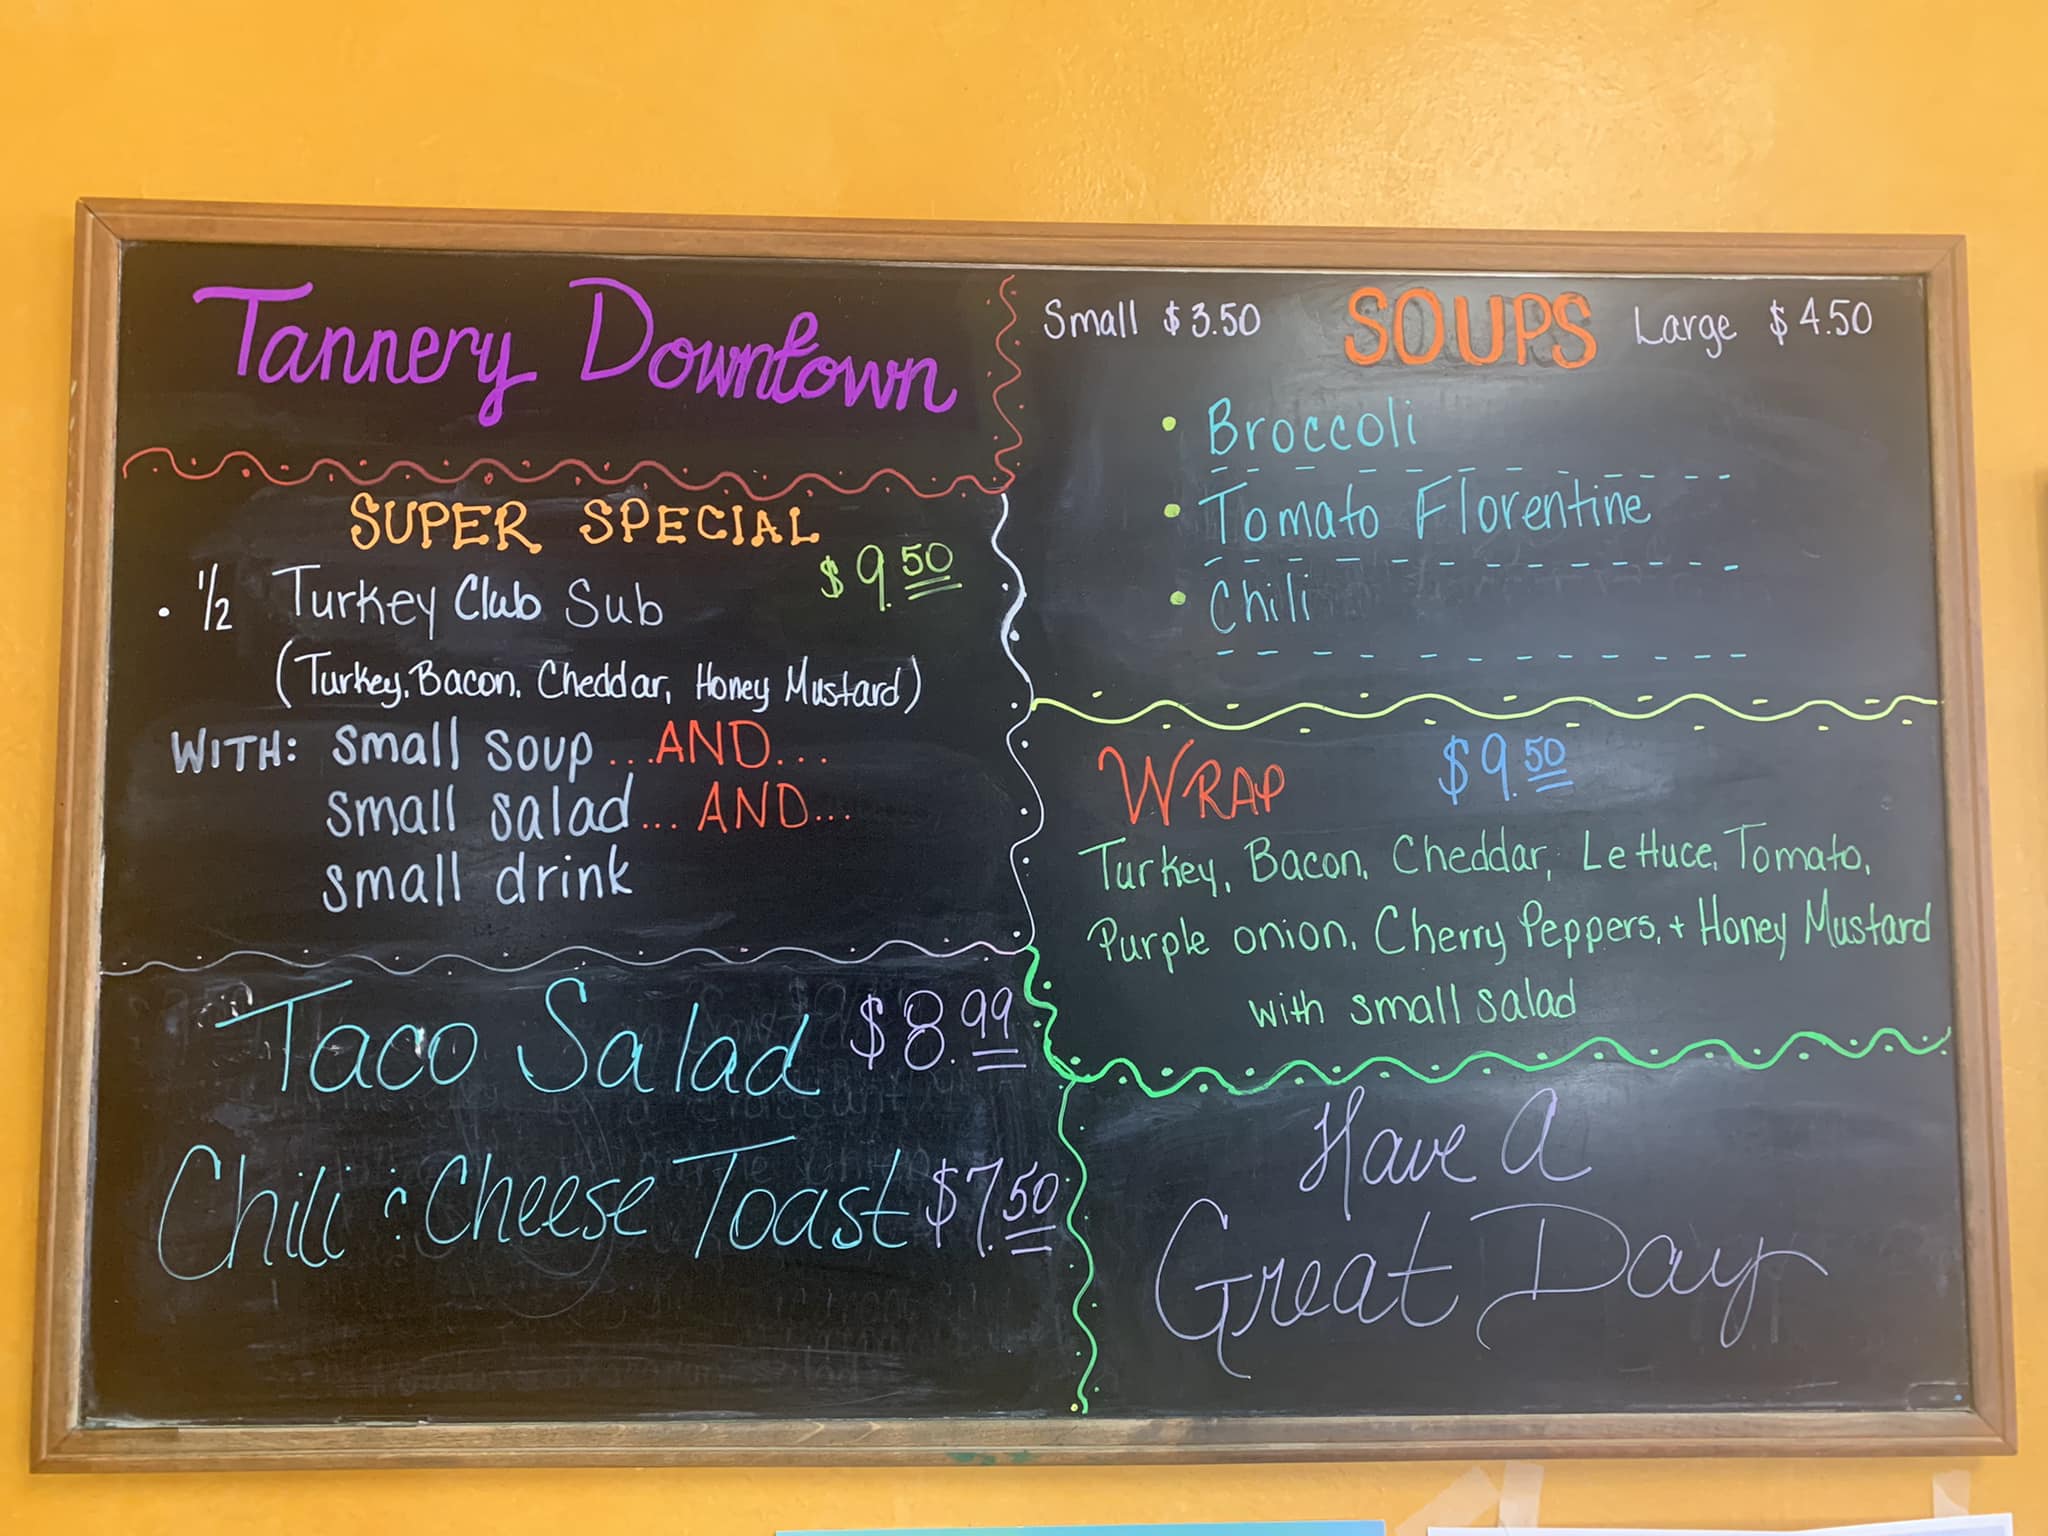 Tannery Downtown
SUPER SPECIAL
$9.50
• 1/2 Turkey Club Sub
(Turkey, Bacon, Cheddar, Honey Mustard)
WITH: small soup...AND...
small salad...AND...
small drink
Taco Salad $8.99
Chili & Cheese Toast $7.50
Small $3.50 SOUPS Large $4.50
• Broccoli
• Tomato Florentine
• Chili
WRAP $9.50
Turkey, Bacon, Cheddar, Lettuce, Tomato,
Purple onion, Cherry Peppers, + Honey Mustard
with small salad
Have A
Great Day